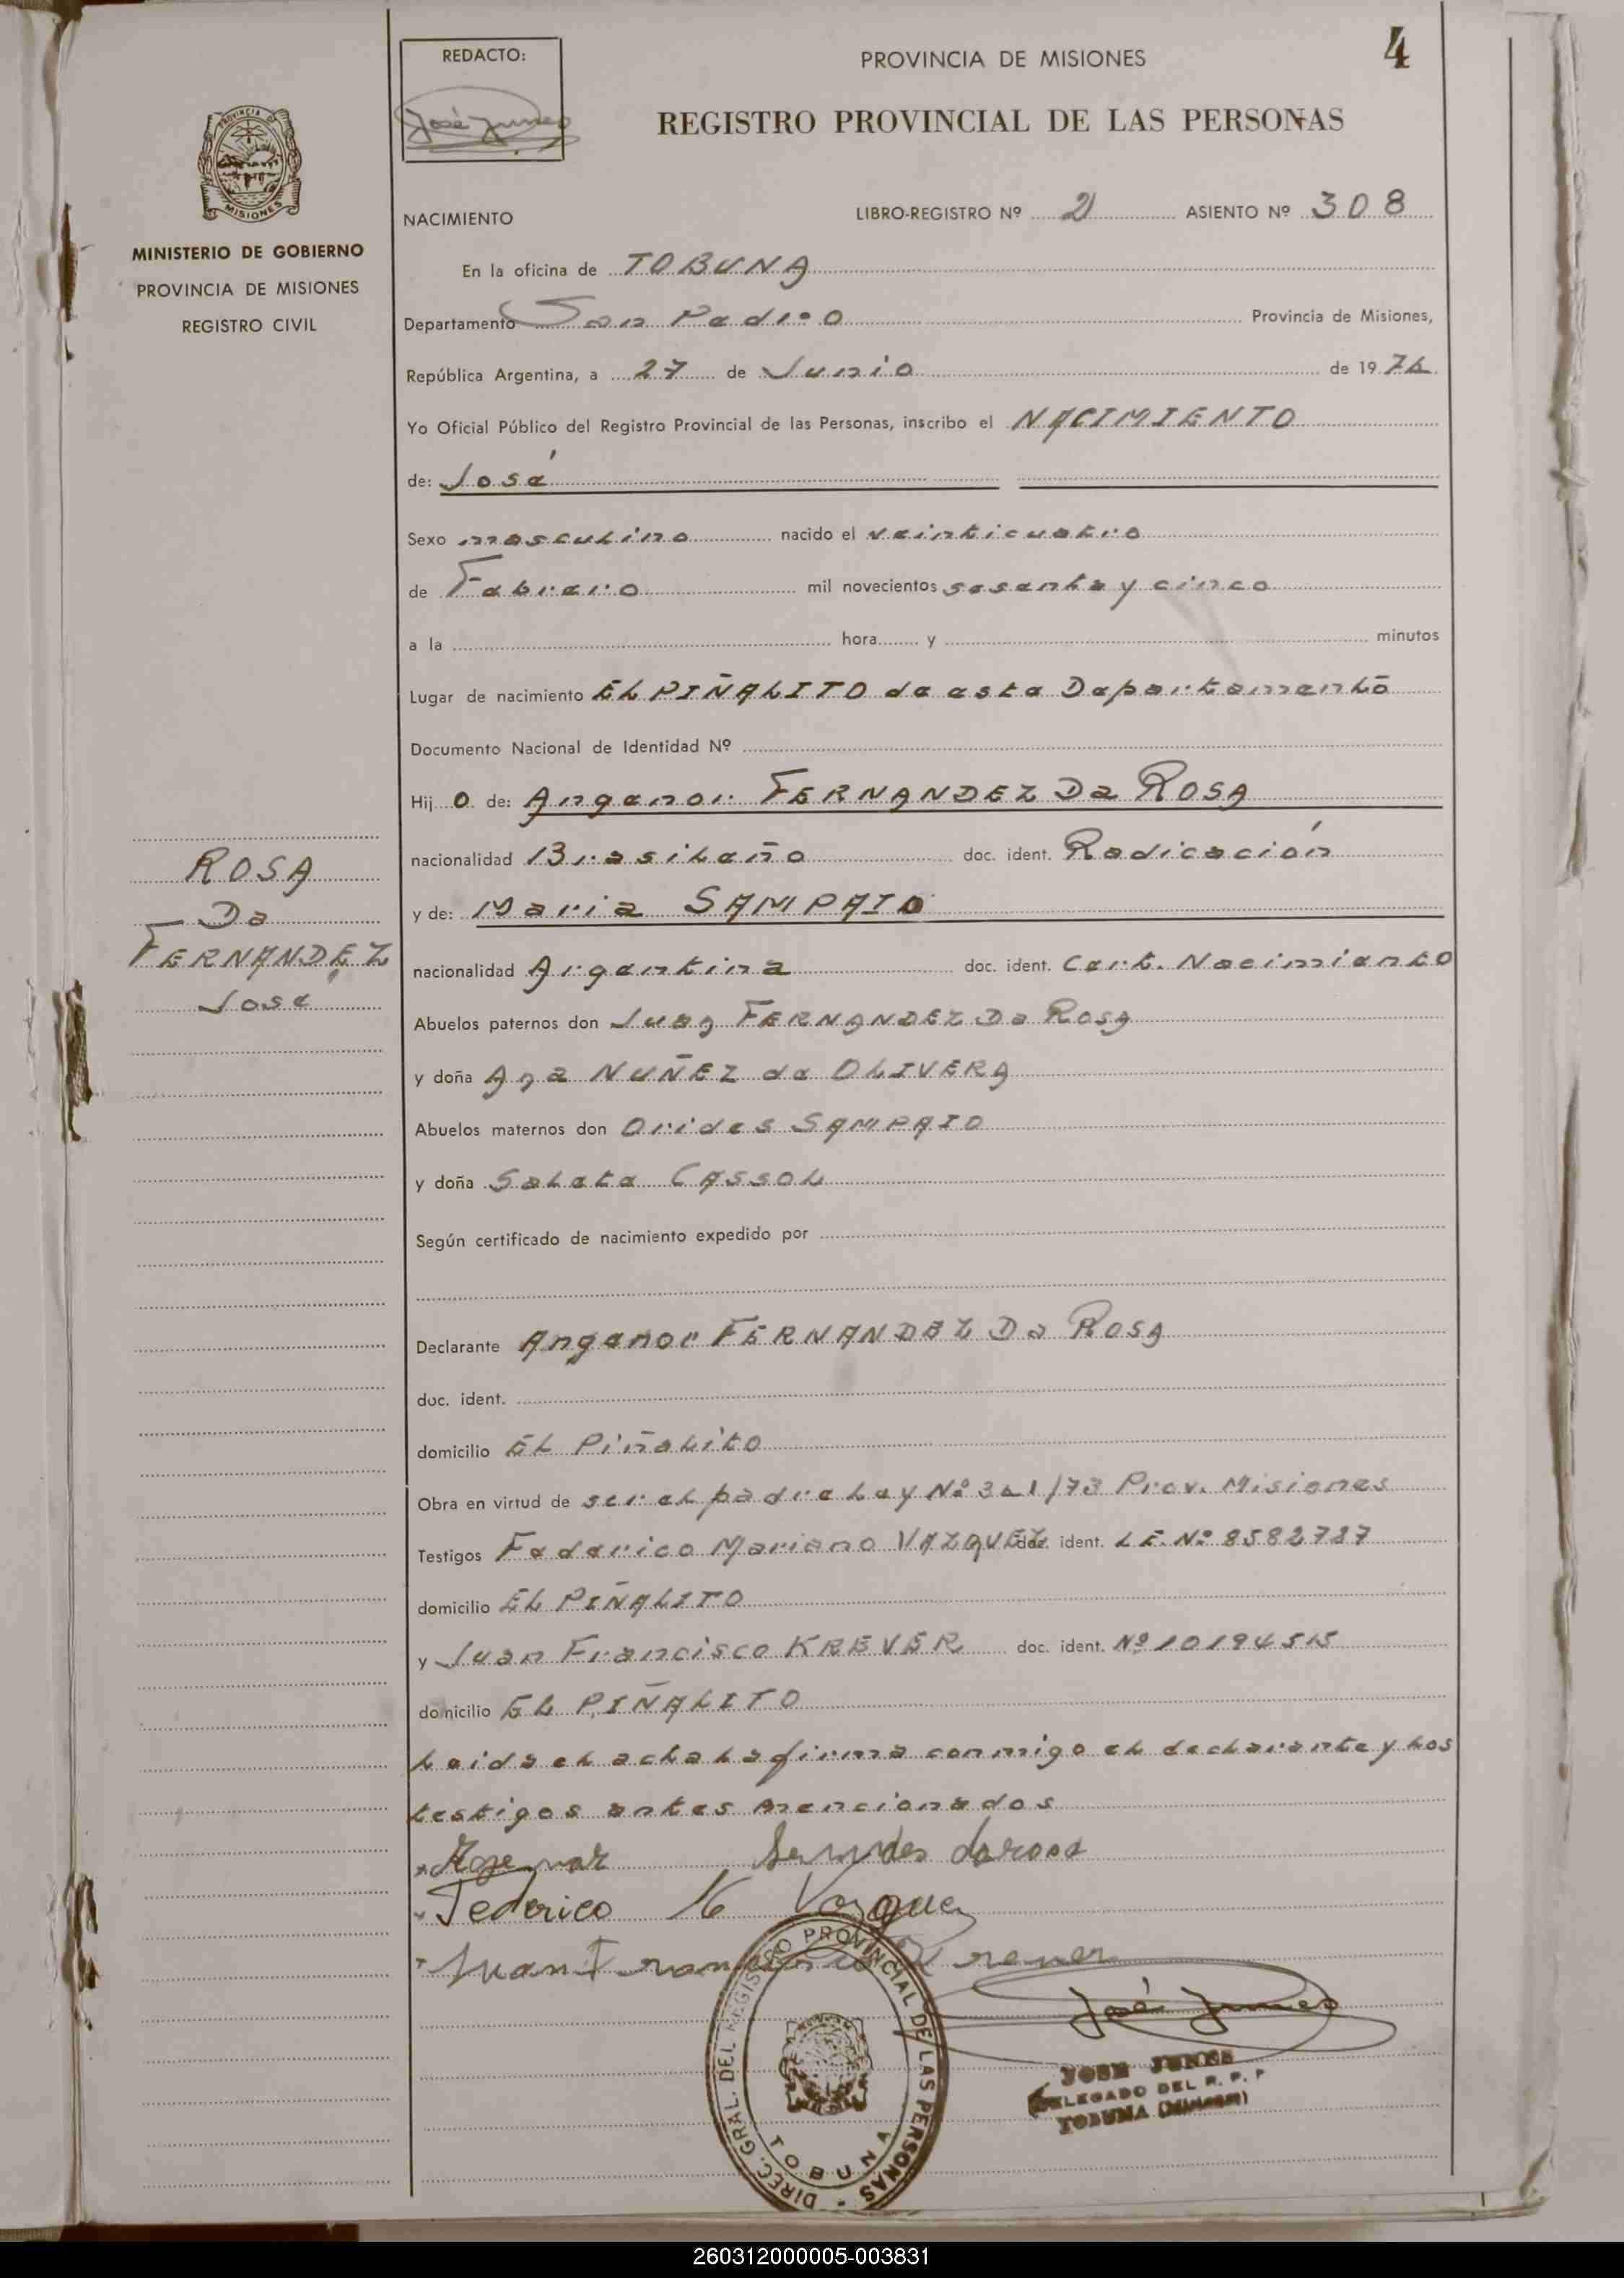 REDACTO:
José Junes
PROVINCIA DE MISIONES
4
REGISTRO PROVINCIAL DE LAS PERSONAS
PROVINCIA DE
MISIONES
MINISTERIO DE GOBIERNO
PROVINCIA DE MISIONES
REGISTRO CIVIL
NACIMIENTO
LIBRO-REGISTRO Nº 2 ASIENTO Nº 308
En la oficina de TOBUNA
Departamento San Pedro Provincia de Misiones,
República Argentina, a 27 de Junio de 19
Yo Oficial Público del Registro Provincial de las Personas, inscribo el NACIMIENTO
de: José
Sexo masculino nacido el veinticuatro
de Febrero mil novecientos sesenta y cinco
a la hora y minutos
Lugar de nacimiento EL PIÑALITO de este Departamento
Documento Nacional de Identidad Nº
Hij o de: Angenor FERNANDEZ Da ROSA
nacionalidad Brasileño doc. ident. Radicación
y de: Maria SAMPAIO
nacionalidad Argentina doc. ident. Cert. Nacimiento
Abuelos paternos don Juan FERNANDEZ Da Rosa
y doña Ana NUÑEZ de OLIVERA
Abuelos maternos don Orides SAMPAIO
y doña Salete CASSOL
Según certificado de nacimiento expedido por
Declarante Angenor FERNANDEZ Da ROSA
doc. ident.
domicilio EL Piñalito
Obra en virtud de ser el padre Ley Nº /73 Prov. Misiones
Testigos Federico Mariano VAZQUEZ doc. ident. L.E. Nº 8582787
domicilio EL PIÑALITO
y Juan Francisco KREVER doc. ident. Nº 10194515
domicilio EL PIÑALITO
Leida el acta la firma conmigo el declarante y los
testigos antes mencionados
ROSA
Da
FERNANDEZ
José
darosa
Federico M Vazquez
Juan Francisco Krever
José Junes
JOSE JUNES
DELEGADO DEL R. P. P
TOBUNA (Misiones)
DIREC. GRAL. DEL REGISTRO PROVINCIAL DE LAS PERSONAS
TOBUNA
260312000005-003831